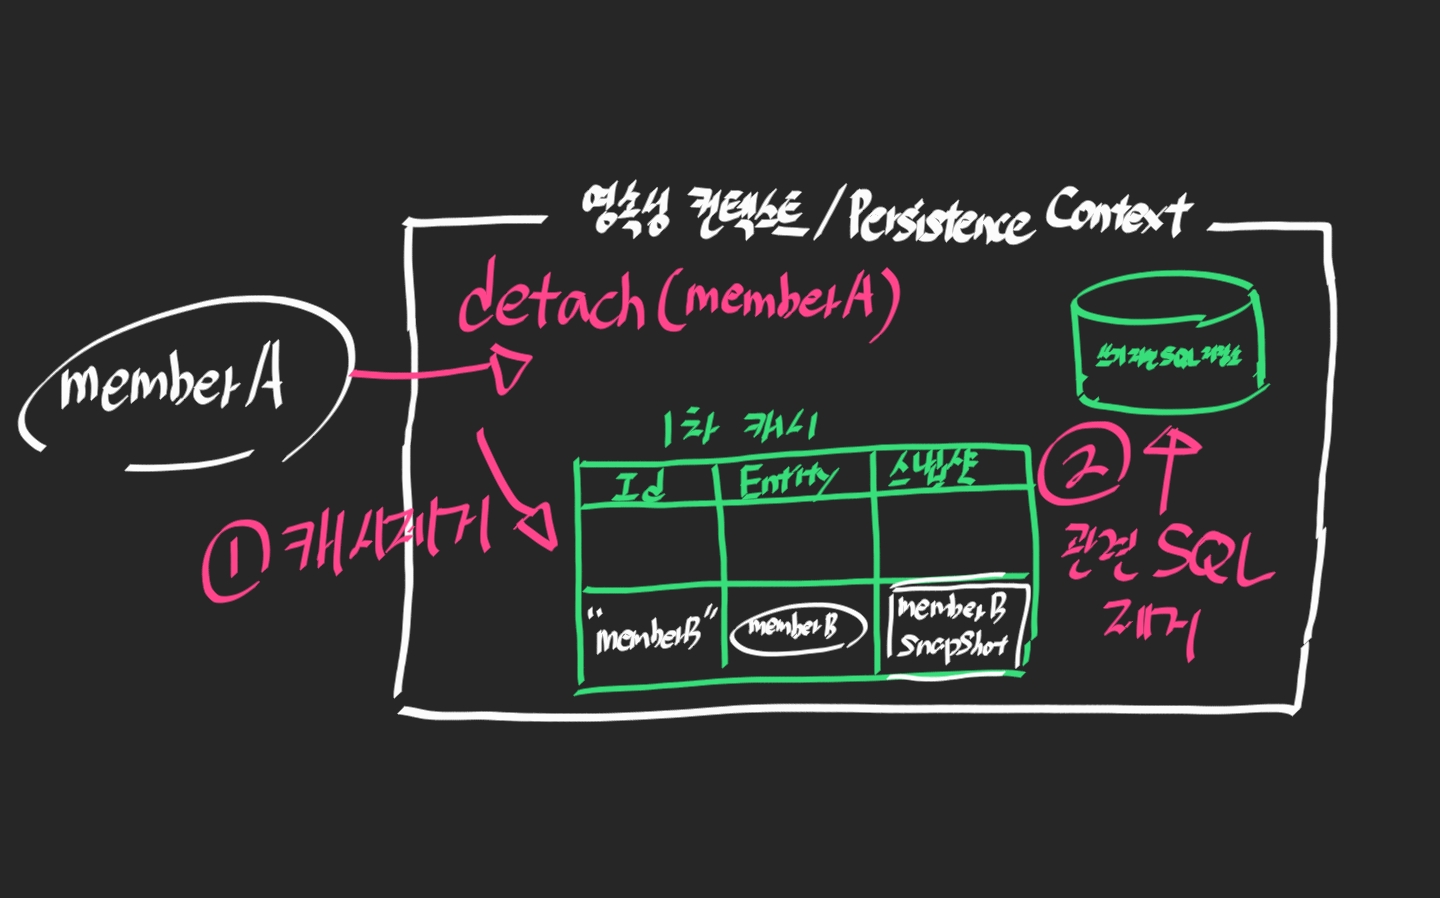 영속성 컨텍스트 / Persistence Context
detach(memberA)
memberA
쓰기 지연 SQL 저장소
1차 캐시
Id Entity 스냅샷
① 캐시제거
"memberB" memberB memberB snapshot
②
관련 SQL
제거